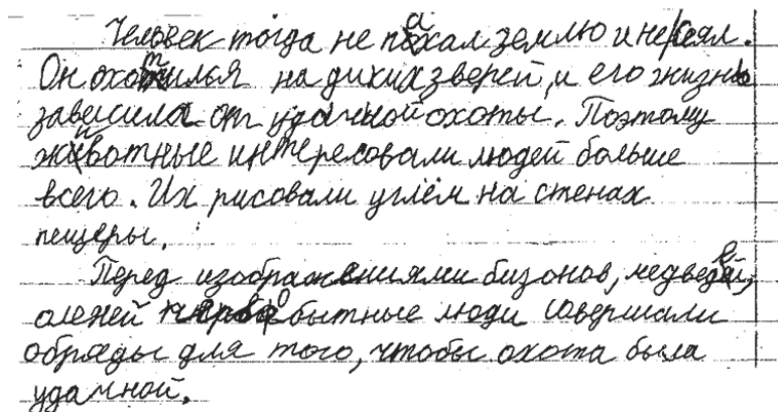 Человек тогда не пахал землю и не сеял.
Он охотилья на диких зверей, и его жизнь
зависила от удачной охоты. Поэтому
животные интересовали людей больше
всего. Их рисовали углём на стенах
пещеры.
Перед изображениями бизонов, медведей,
оленей первобытные люди совершали
обряды для того, чтобы охота была
удачной.